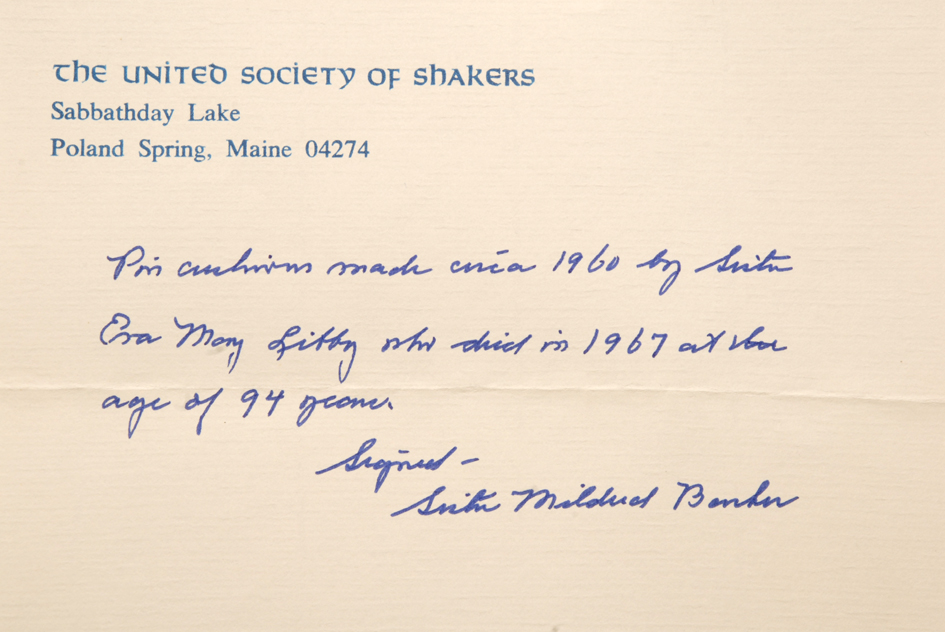 THE UNITED SOCIETY OF SHAKERS
Sabbathday Lake
Poland Spring, Maine 04274
Pin cushions made circa 1960 by Sister
Eva May Libby who died in 1967 at the
age of 94 years.
Signed -
Sister Mildred Barker